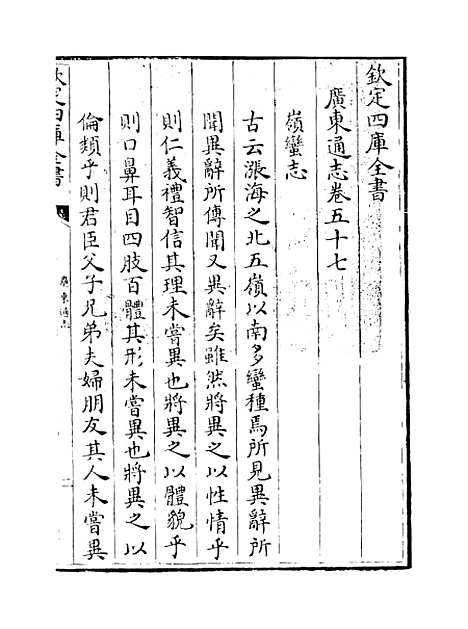 欽定四庫全書
廣東通志卷五十七
嶺蠻志
古云漲海之北五嶺以南多蠻種焉所見異辭所
聞異辭所傳聞又異辭矣雖然將異之以性情乎
則仁義禮智信其理未嘗異也將異之以體貌乎
則口鼻耳目四肢百體其形未嘗異也將異之以
倫類乎則君臣父子兄弟夫婦朋友其人未嘗異
欽定四庫全書
廣東通志
一